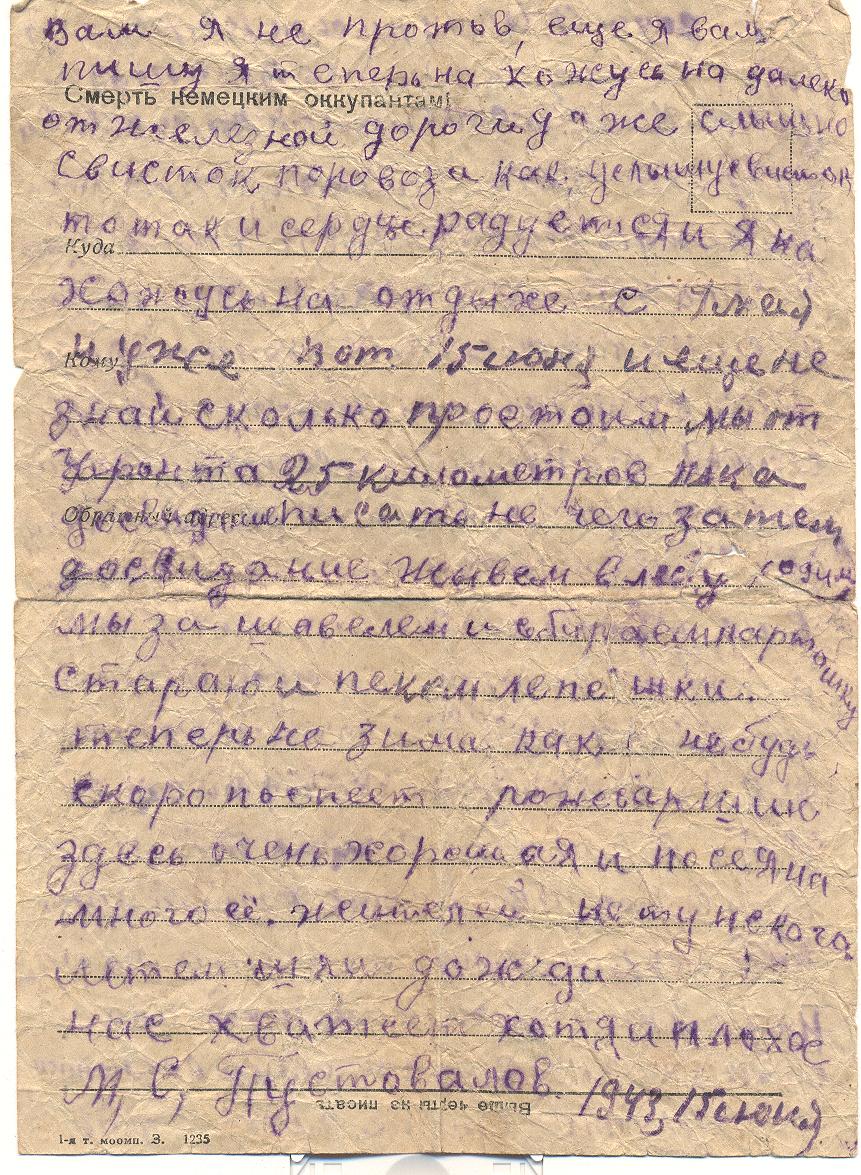 вам я не против, еще я вам
пишу я теперь на хожусь на далеко
Смерть немецким оккупантам!
от железной дороги даже слышно
свисток поровоза как услышу свисток
то так и сердце радуется и я на
Куда
хожусь на отдыхе с 7 мая
Кому
и уже вот 15 июня и еще не
знай сколько простоим мы от
фронта 25 километров пока
Обратный адрес
писать не чего затем
досвидание живем в лесу ходим
мы за шавелем и сбираем картошку
старою и пекем лепешки.
теперь не зима как нибудь
скоро поспеет рожь
здесь очень хорошая и посеяна
много её. жителей нету некого
шли дожди
нас хватает хотя и плохое
М, С, Пустовалов 1943, 15 июня
Выше черты не писать
1-я т. моомп. З. 1235